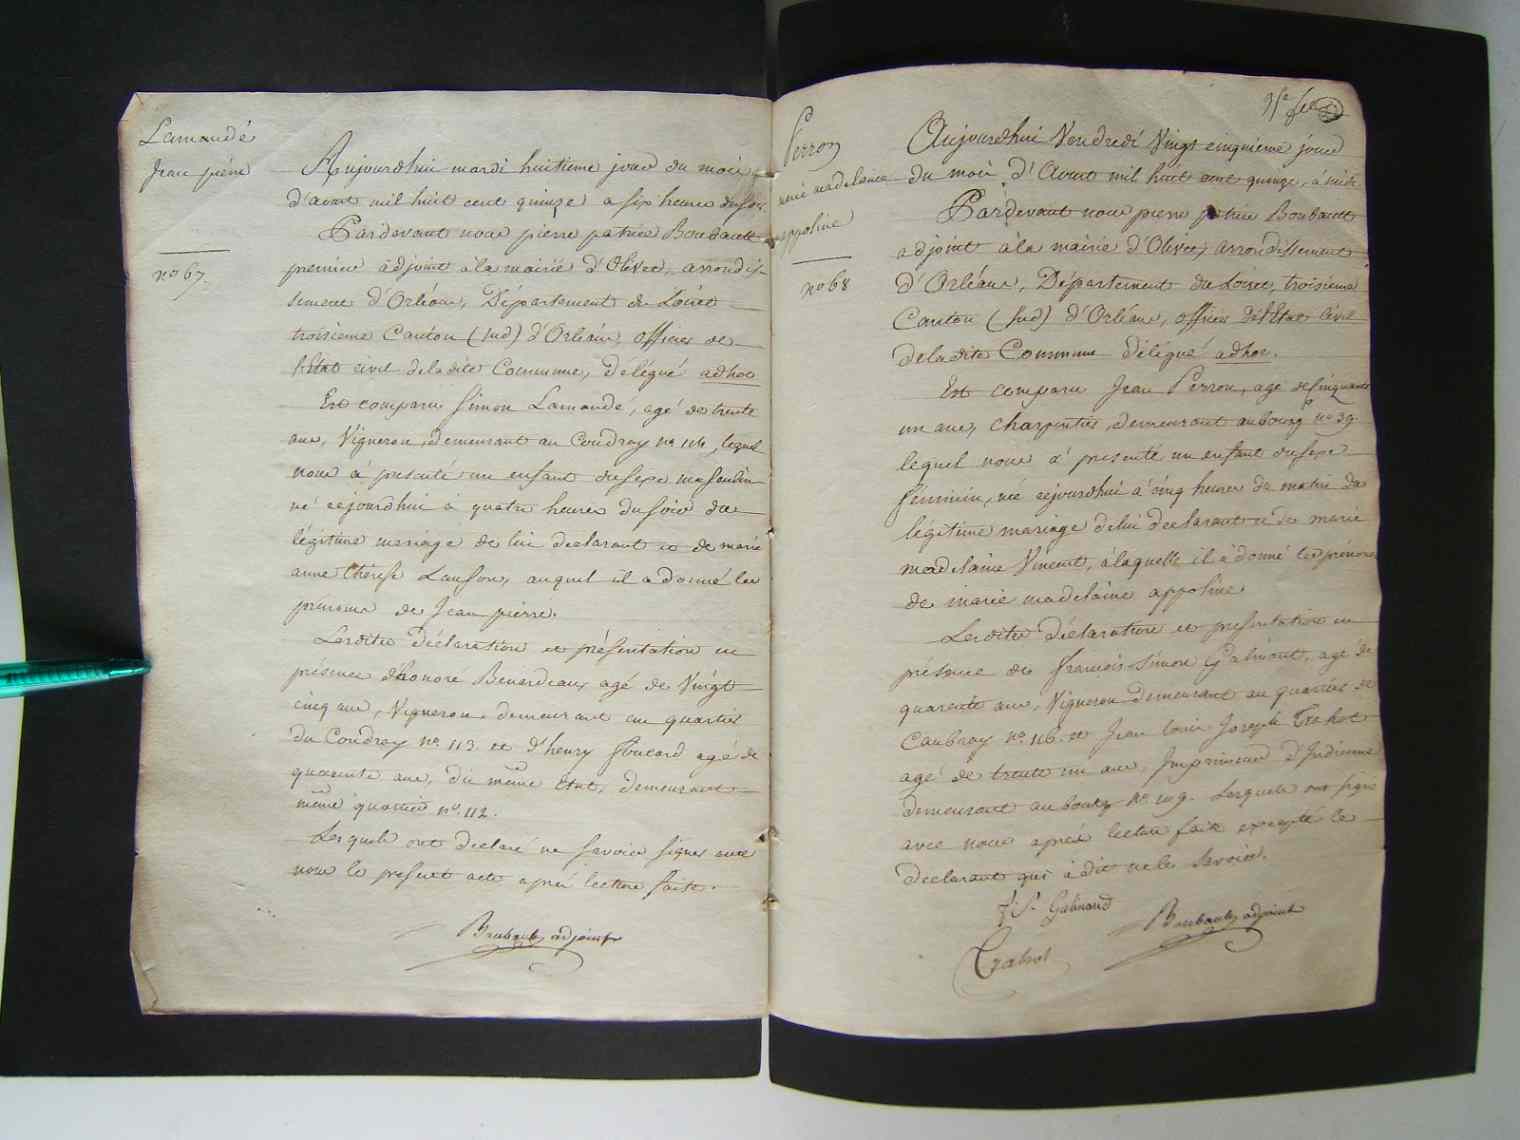 Lamandé
Jean pierre
no 67.
Aujourdhui mardi huitieme jour du mois
d'aout mil huit cent quinze a six heures du soir.
Pardevant nous pierre patrice Boubault
premier adjoint à la mairie d'Olivet, arrondis-
sement d'Orléans, Département du Loiret
troisieme Canton (sud) d'Orléans, officier de
l'Etat civil de la dite Commune, délégué adhoc
Est comparu Simon Lamandé, agé de trente
ans, Vigneron, demeurant au Coudray no 116, lequel
nous à presenté un enfant du sexe masculin
né cejourdhui à quatre heures du soir du
légitime mariage de lui declarant et de marie
anne thérese Lanson, auquel il a donné les
prénoms de Jean pierre.
Lesdites déclaration et présentation en
présence d'honoré Benardeaux agé de Vingt
cinq ans, Vigneron, demeurant au quartier
du Coudray no. 113. et d'henry foucard agé de
quarante ans, du même état, demeurant
même quartier no. 112.
Lesquels ont declaré ne savoir signer avec
nous le present acte après lecture faite.
Boubault adjoint
Perron
marie madelaine
appoline
no 68
Aujourdhui Vendredi Vingt cinquieme jour
du mois d'Aout mil huit cent quinze, à midi
Pardevant nous pierre patrice Boubault
adjoint à la mairie d'Olivet, arrondissement
d'Orléans, Département du Loiret, troisieme
Canton (sud) d'Orléans, officier de l'Etat Civil
de la dite Commune délégué adhoc.
Est comparu Jean Perron, agé de cinquante
un ans, charpentier, demeurant au bourg no 39
lequel nous a presenté un enfant du sexe
féminin, née cejourdhui à cinq heures du matin du
légitime mariage de lui declarant et de marie
madelaine Vincent, à laquelle il à donné les prénoms
de marie madelaine appoline
Lesdites déclaration et presentation en
présence de françois Simon Galmard, agé de
quarante ans, Vigneron demeurant au quartier de
Caubray no. 116. et Jean Louis Joseph Trabot
agé de trente un ans, Imprimeur d'Indienne
demeurant au bourg no. 109. Lesquels ont signé
avec nous après lecture faite excepté le
declarant qui à dit ne le Savoir.
f. S. Galmard
Boubault adjoint
Trabot